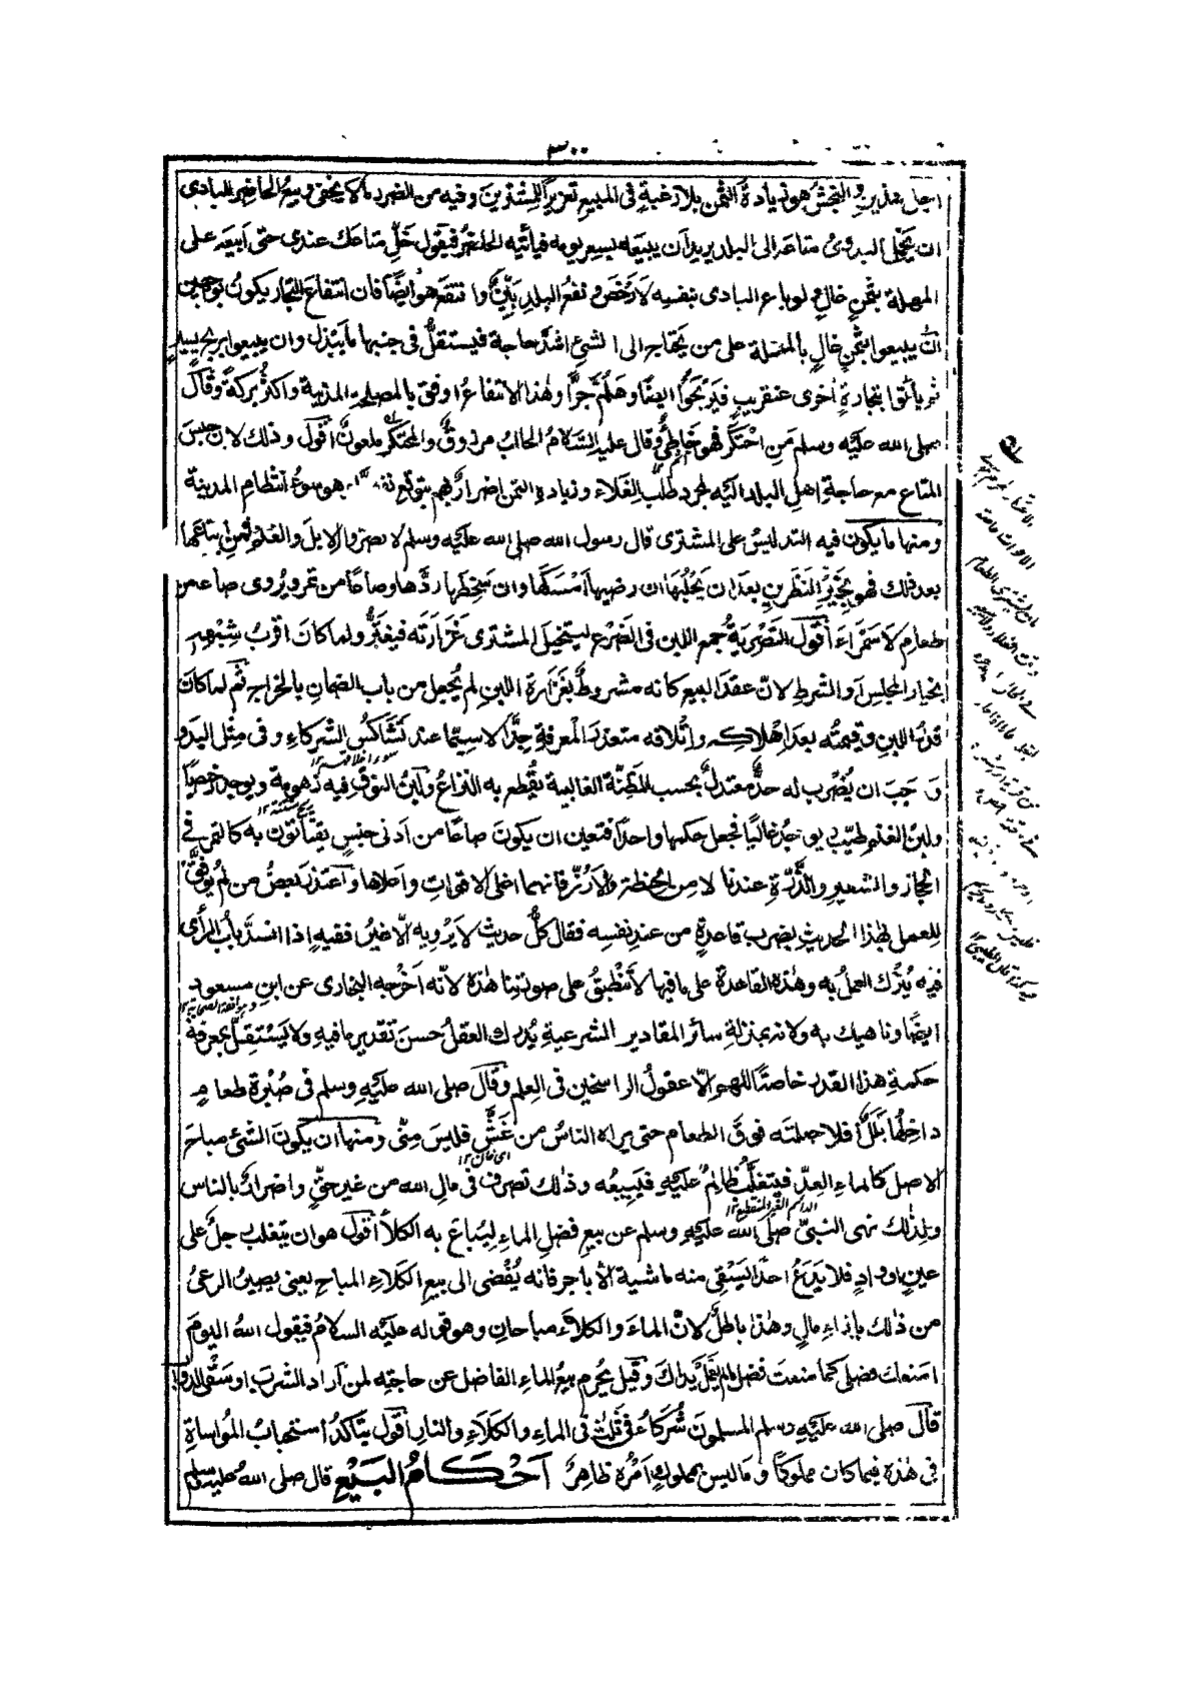 ٣٠٠
اجل هذين والنجش هو زيادة الثمن بلا رغبة فى المبيع تغريرا للمشترين وفيه من الضرر ما لا يخفى وبيع الحاضر للبادى
ان يحمل البدوى متاعه الى البلد يريد ان يبيعه بسعر يومه فيأتيه الحاضر فيقول خل متاعك عندى حتى ابيعه على
المهلة بثمن غال ولو باع البادى بنفسه لارخص ونفع البلديين وانتفع هو ايضا فان انتفاع التجار يكون بوجهين
ان يبيعوا بثمن غال بالمهلة على من يحتاج الى الشئ اشد حاجة فيستقل فى جنبها ما يبذل وان يبيعوا بربح يسير
ثم يأتوا بتجارة اخرى عنقريب فيربحوا ايضا وهلم جرا وهذا الانتفاع اوفق بالمصلحة المدنية واكثر بركة وقال
صلى الله عليه وسلم من احتكر فهو خاطئ وقال عليه السلام الجالب مرزوق والمحتكر ملعون اقول وذلك لان حبس
المتاع مع حاجة اهل البلد اليه لمجرد طلب الغلاء وزيادة الثمن اضرار بهم بتوقع نفع ما وهو سوء انتظام المدينة
ومنها ما يكون فيه التدليس على المشترى قال رسول الله صلى الله عليه وسلم لا تصروا الابل والغنم فمن ابتاعها
بعد ذلك فهو بخير النظرين بعد ان يحلبها ان رضيها امسكها وان سخطها ردها وصاعا من تمر ويروى صاعا من
طعام لا سمراء اقول التصرية جمع اللبن فى الضرع ليتخيل المشترى غزارته فيغتر ولما كان اقرب شبهه
بخيار المجلس او الشرط لان عقد البيع كانه مشروط بغزارة اللبن لم يجعل من باب الضمان بالخراج ثم لما كان
قدر اللبن وقيمته بعد اهلاكه واتلافه متعذر المعرفة جدا لا سيما عند تشاكس الشركاء وفى مثل البدو
وجب ان يضرب له حد معتدل بحسب المظنة الغالبية يقطع به النزاع ولبن النوق فيه زهومة ويوجد رخيصا
ولبن الغنم طيب يوجد غاليا فجعل حكمها واحدا فتعين ان يكون صاعا من ادنى جنس يقتاتون به كالتمر فى
الحجاز والشعير والذرة عندنا لا من الحنطة والارز فانهما اغلى الاقوات واعلاها واعتذر بعض من لم يوفق
للعمل بهذا الحديث بضرب قاعدة من عند نفسه فقال كل حديث لا يرويه الا غير فقيه اذا انسد باب الرأى
فيه يترك العمل به وهذه القاعدة على ما فيها لا تنطبق على صورتنا هذه لانه اخرجه البخارى عن ابن مسعود
ايضا وناهيك به ولانه بمنزلة سائر المقادير الشرعية يدرك العقل حسن تقدير ما فيه ولا يستقل بمعرفة
حكمة هذا القدر خاصة اللهم الا عقول الراسخين فى العلم وقال صلى الله عليه وسلم فى صبرة طعام
داخلها بلل افلا جعلته فوق الطعام حتى يراه الناس من غش فليس منى ومنها ان يكون الشئ مباح
الاصل كالماء العد فيتغلب ظالم عليه فيبيعه وذلك تصرف فى مال الله من غير حق واضرار بالناس
الدائم الغير المنقطع ١٢
ولذلك نهى النبى صلى الله عليه وسلم عن بيع فضل الماء ليباع به الكلأ اقول هو ان يتغلب رجل على
عين او واد فلا يدع احدا يسقى منه ماشية الا باجر فانه يفضى الى بيع الكلاء المباح يعنى يصير الرعى
من ذلك بازاء مال وهذا باطل لان الماء والكلاء مباحان وهو قوله عليه السلام فيقول الله اليوم
امنعك فضلى كما منعت فضل ما لم تعمل يداك وقيل يحرم بيع الماء الفاضل عن حاجته لمن اراد الشرب او سقى الدواب
قال صلى الله عليه وسلم المسلمون شركاء فى ثلث فى الماء والكلاء والنار اقول يتأكد استحباب المواساة
فى هذه فيما كان مملوكا وما ليس بمملوك امره ظاهر احكام البيع قال صلى الله عليه وسلم